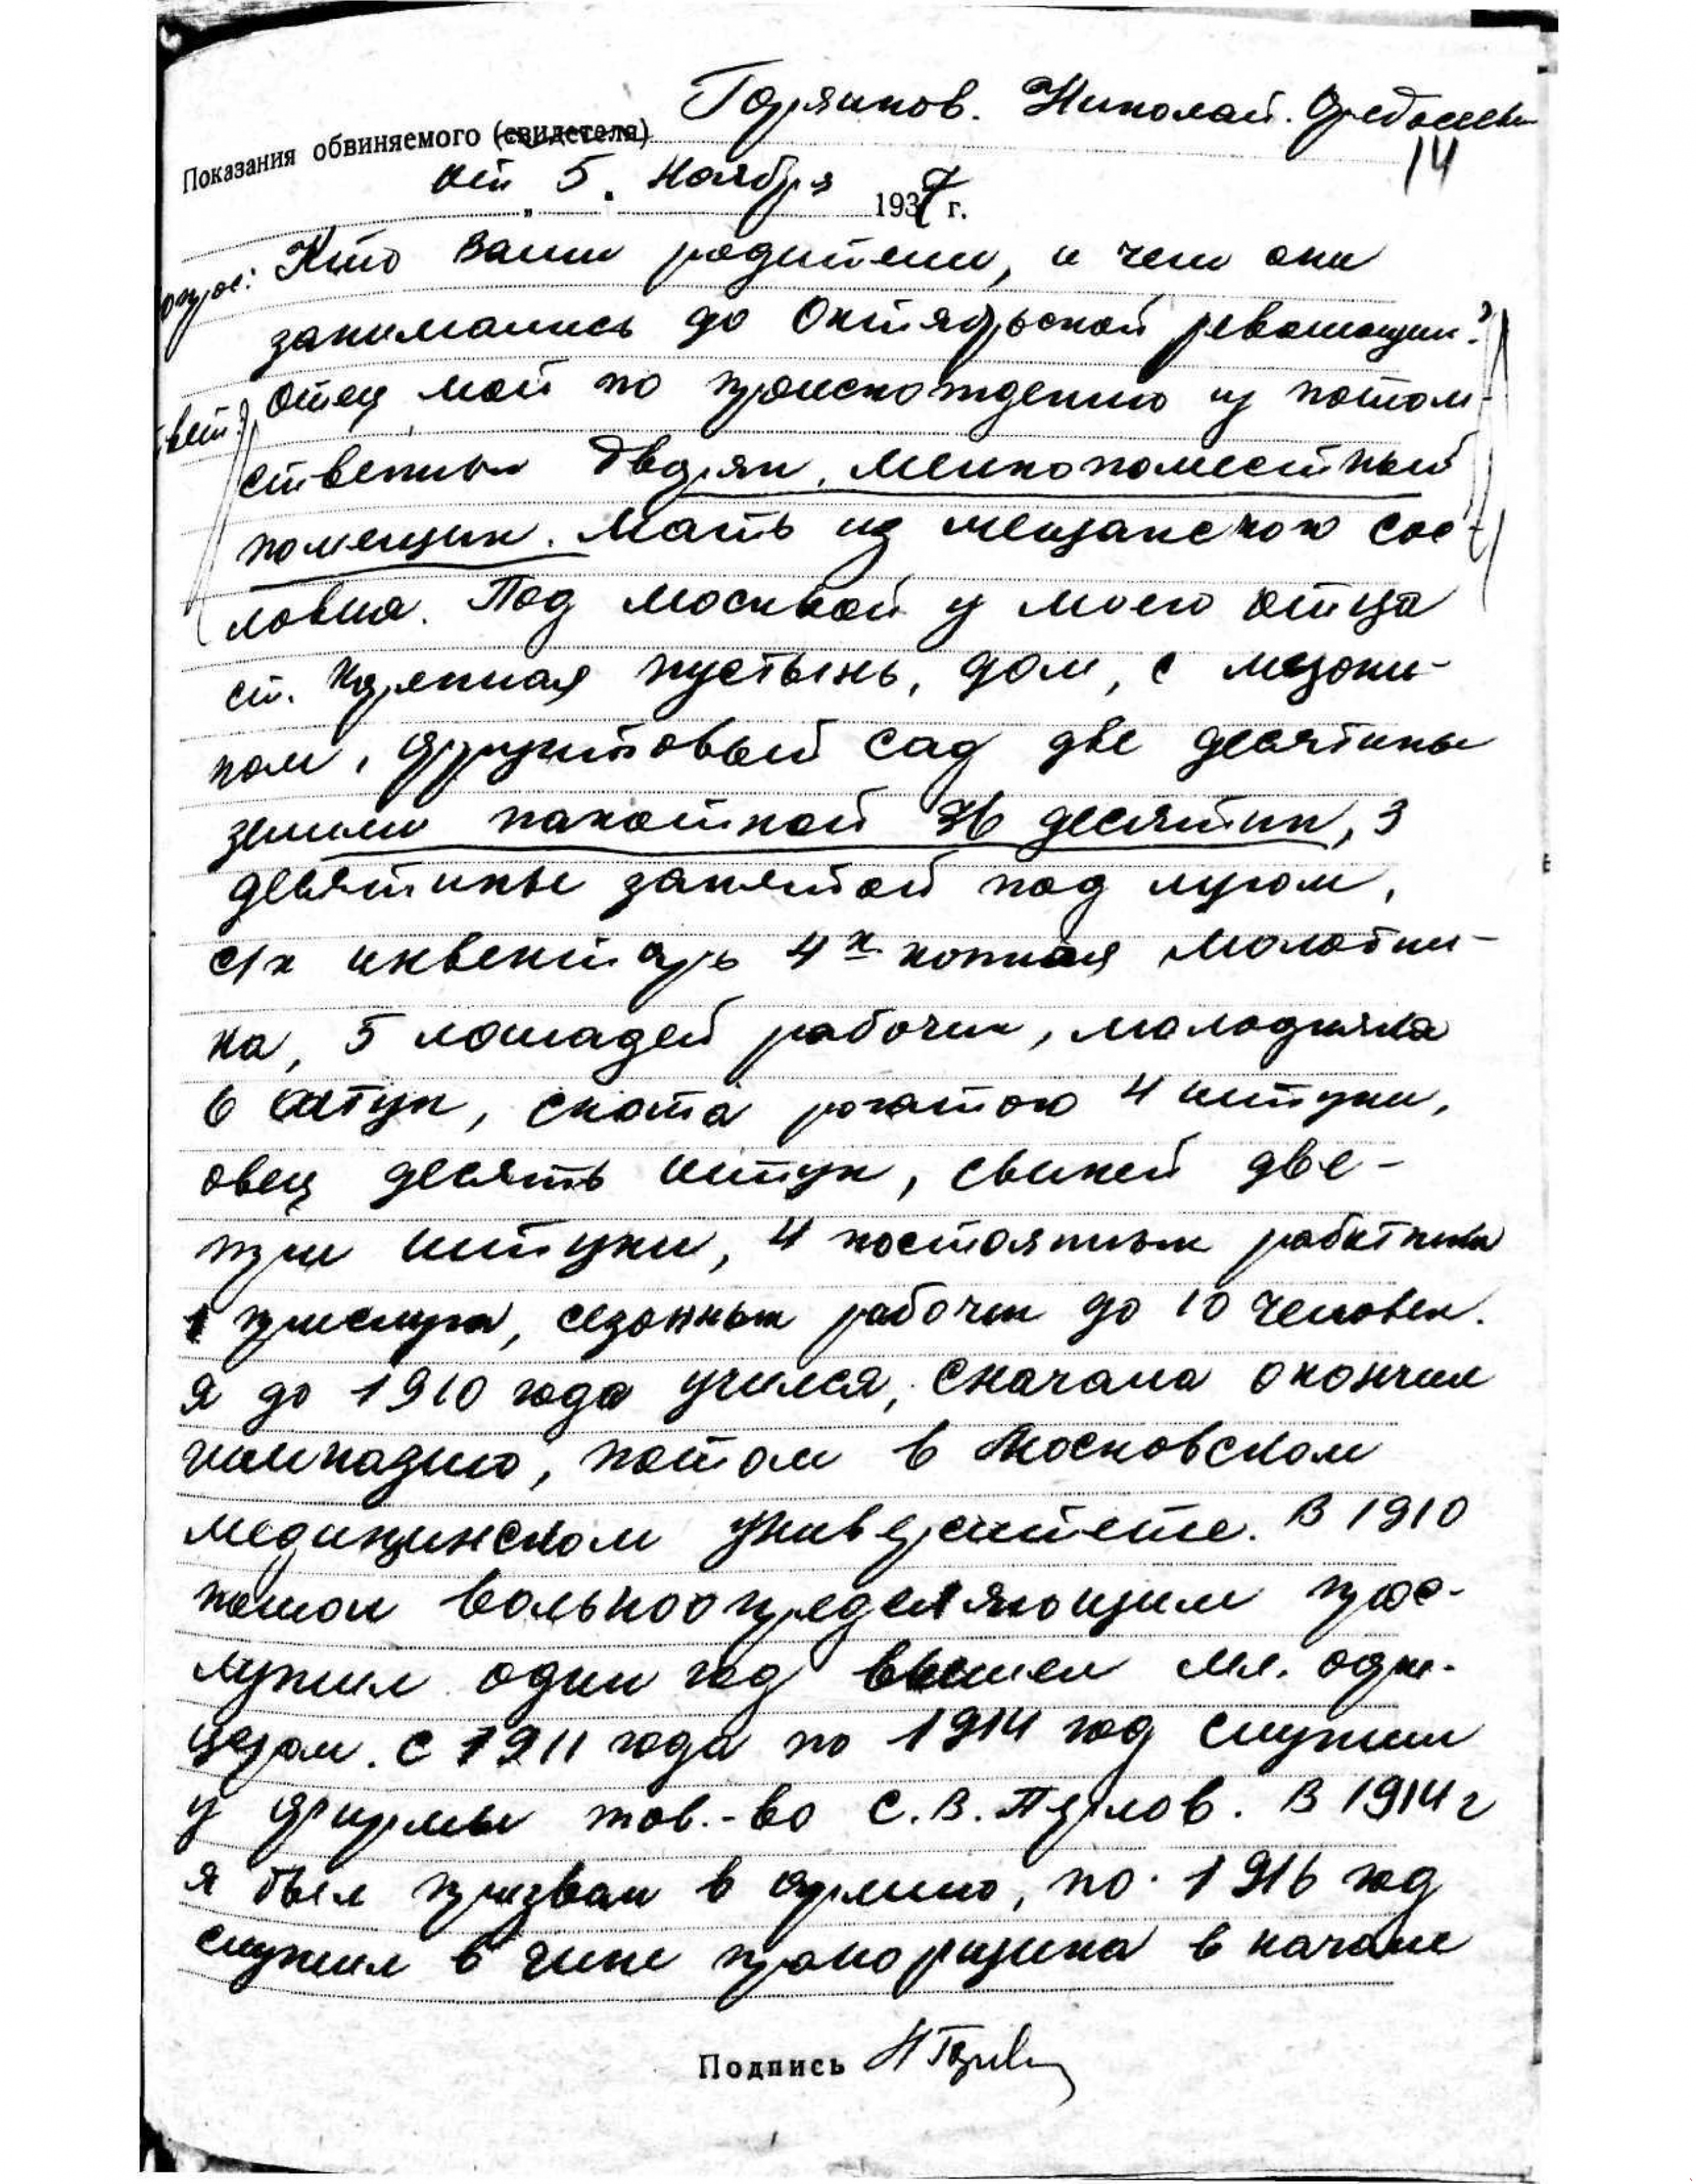 Показания обвиняемого (свидетеля) Горянков. Николай. Федосеев
14
от „5" ноября 1937 г.
опрос: Кто Ваши родители, и чем они
занимались до Октябрьской революции?
твет: Отец мой по происхождению из потом-
ственных дворян, мелкопоместный
помещик. Мать из мещанского сос-
ловия. Под Москвой у моего отца
ст. пустынь, дом, с мезони-
ном, фруктовый сад две десятины
земли пахотной 36 десятин, 3
десятины занятой под лугом,
с/х инвентарь 4х конная молотил-
ка, 5 лошадей рабочих, молодняка
6 штук, скота рогатого 4 штуки,
овец десять штук, свиней две-
три штуки, 4 постоянных работника
1 прислуга, сезонных рабочих до 10 человек.
Я до 1910 года учился, сначала окончил
гимназию, потом в Московском
медицинском университете. В 1910
пошол вольноопределяющим прос-
лужил один год вышел мл. офи-
цером. С 1911 года по 1914 год служил
у фирмы тов.-во С.В. Перлов. В 1914 г
я был призван в армию, по 1916 год
служил в чине прапорщика в начале
Подпись